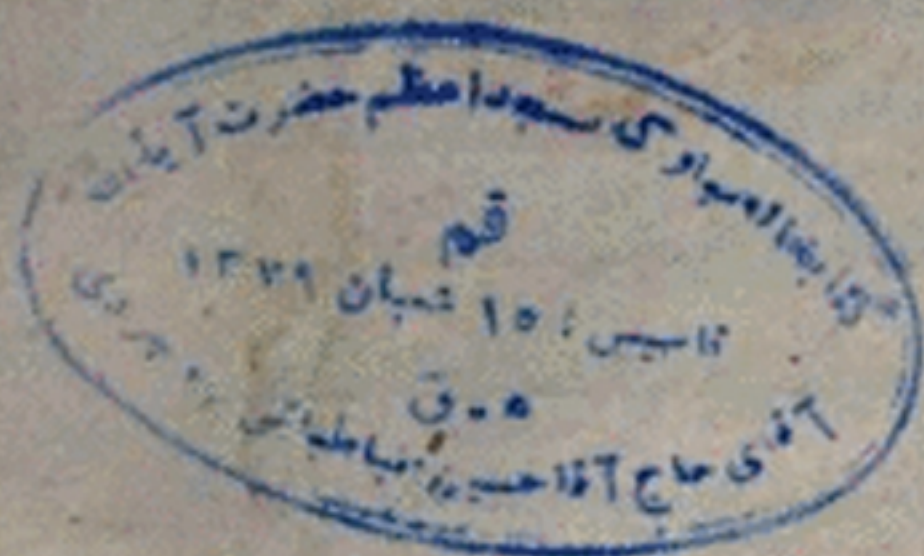 کتابخانه مسجد اعظم حضرت آیة الله
قم
تاسیس : ۱۵ شعبان ۱۳۷۹
ه . ق
آقای حاج آقا حسین طباطبائی بروجردی